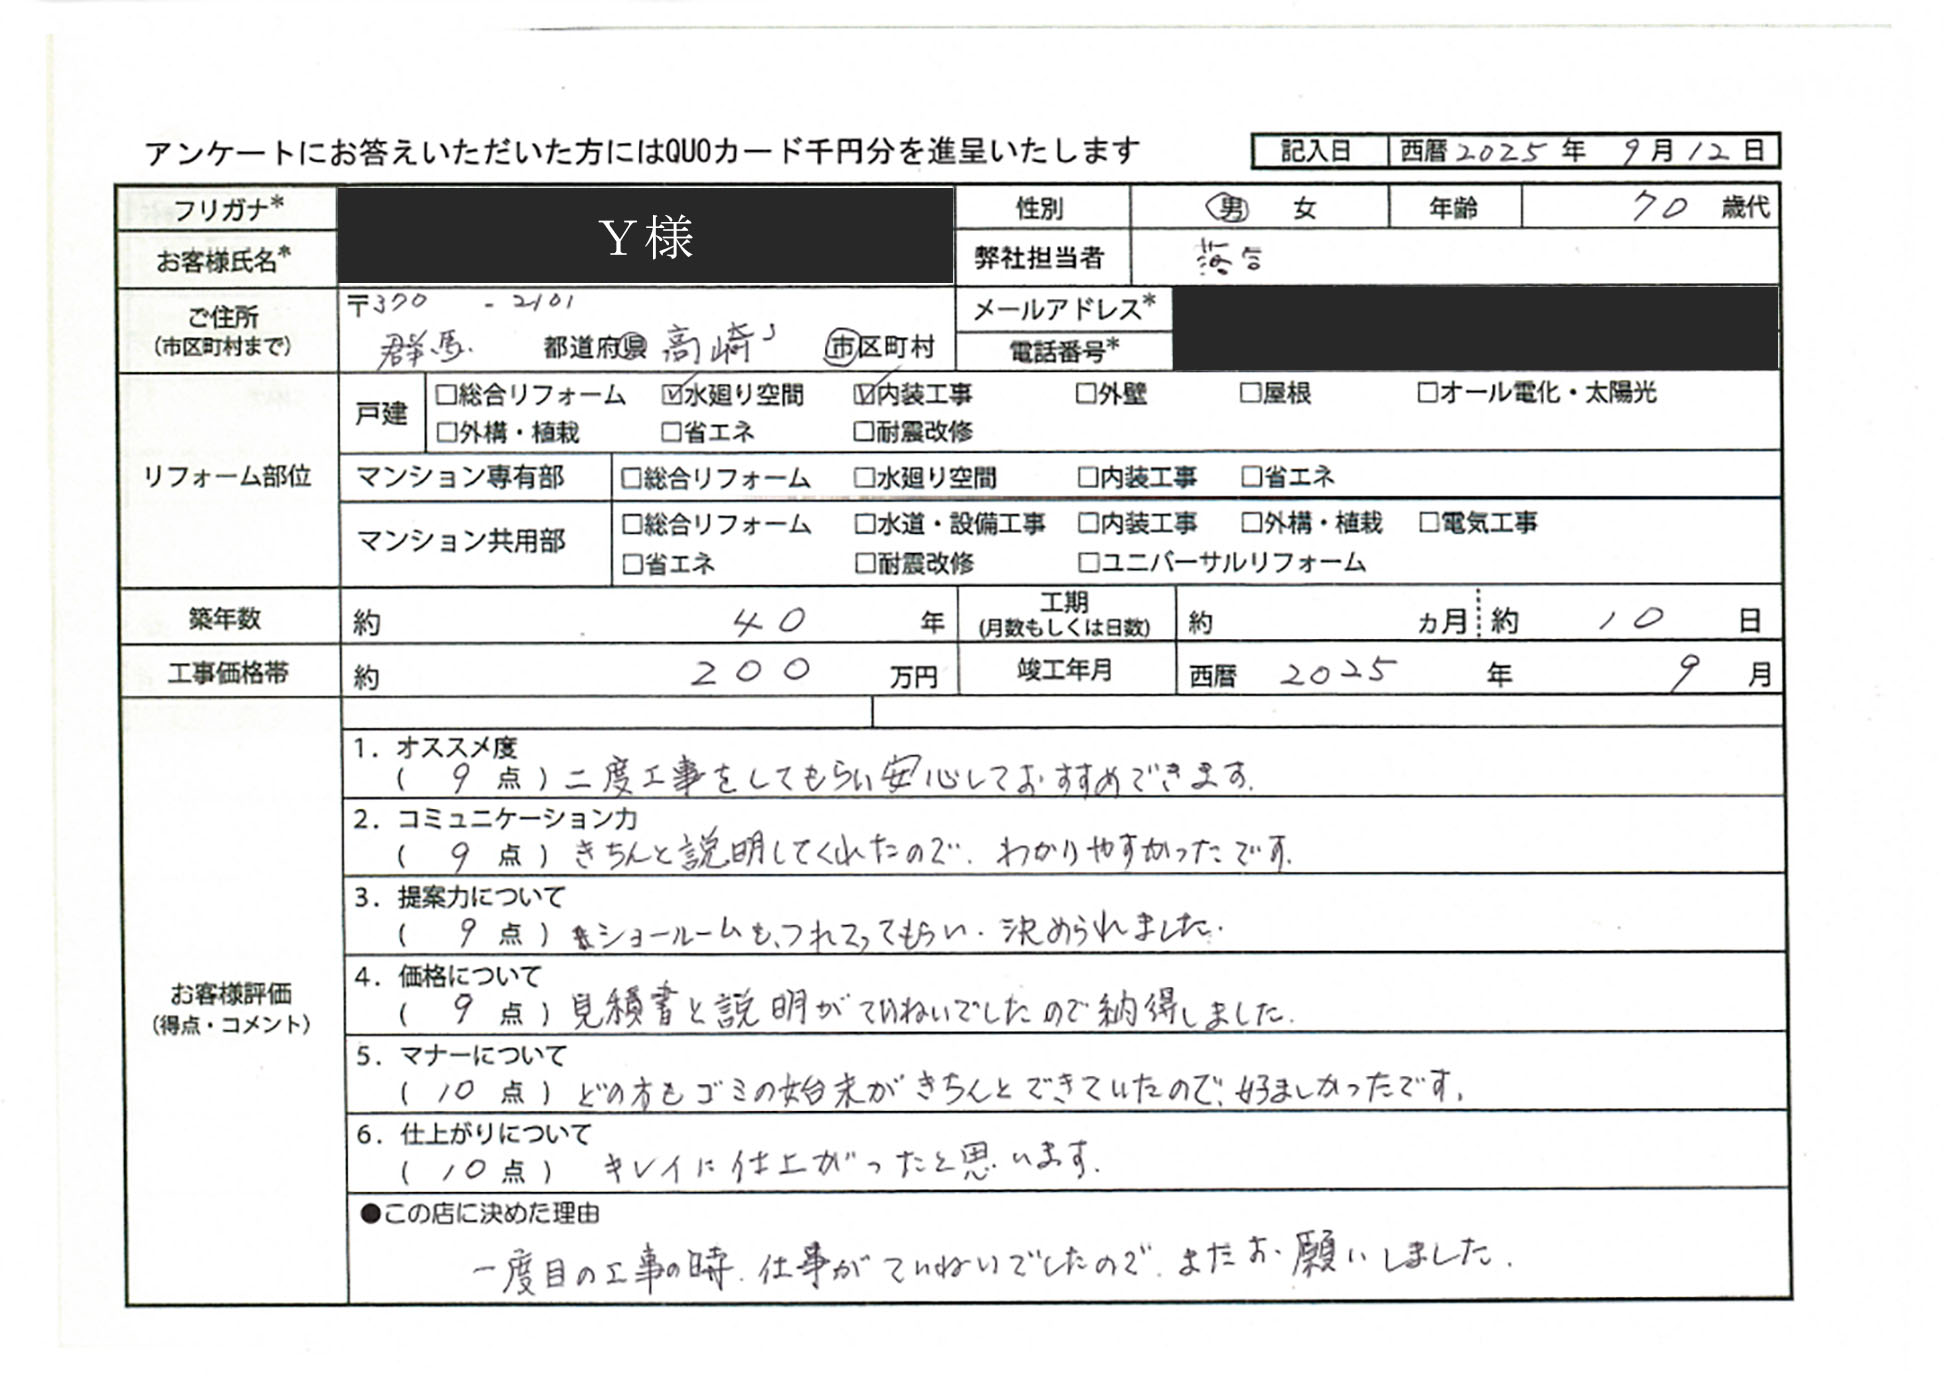 アンケートにお答えいただいた方にはQUOカード千円分を進呈いたします 記入日 西暦 2025 年 9 月 12 日
フリガナ* Y様 性別 男 女 年齢 70 歳代
お客様氏名* 弊社担当者 落合
ご住所 (市区町村まで) 〒370 - 2101 メールアドレス*
群馬 都道府県 高崎 市区町村 電話番号*
リフォーム部位
戸建 □総合リフォーム ☑水廻り空間 ☑内装工事 □外壁 □屋根 □オール電化・太陽光
□外構・植栽 □省エネ □耐震改修
マンション専有部 □総合リフォーム □水廻り空間 □内装工事 □省エネ
マンション共用部 □総合リフォーム □水道・設備工事 □内装工事 □外構・植栽 □電気工事
□省エネ □耐震改修 □ユニバーサルリフォーム
築年数 約 40 年 工期 (月数もしくは日数) 約 ヵ月 約 10 日
工事価格帯 約 200 万円 竣工年月 西暦 2025 年 9 月
お客様評価
(得点・コメント)
1. オススメ度
( 9 点 ) 二度工事をしてもらい安心しておすすめできます.
2. コミュニケーション力
( 9 点 ) きちんと説明してくれたので、わかりやすかったです.
3. 提案力について
( 9 点 ) ショールームも、つれてってもらい、決められました.
4. 価格について
( 9 点 ) 見積書と説明がていねいでしたので納得しました.
5. マナーについて
( 10 点 ) どの方もゴミの始末がきちんとできていたので、好ましかったです.
6. 仕上がりについて
( 10 点 ) キレイに仕上がったと思います.
●この店に決めた理由
一度目の工事の時、仕事がていねいでしたので、またお願いしました.